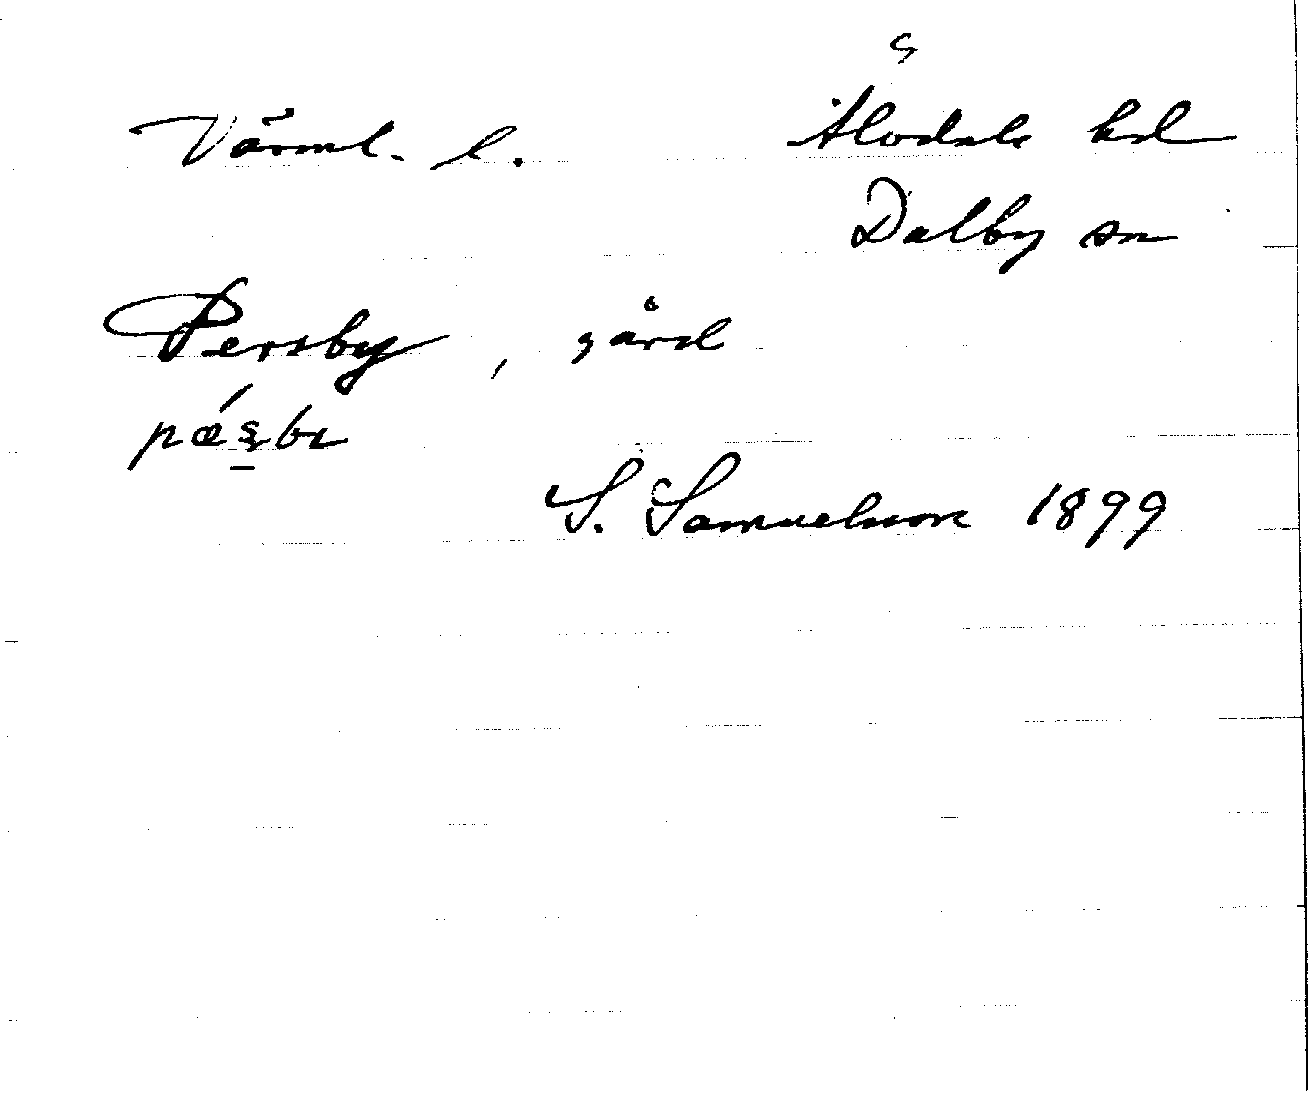 Värml. l. Älvdals hd
Dalby sn
Persby, gård
pǽʂbɪ
S. Samuelsson 1899